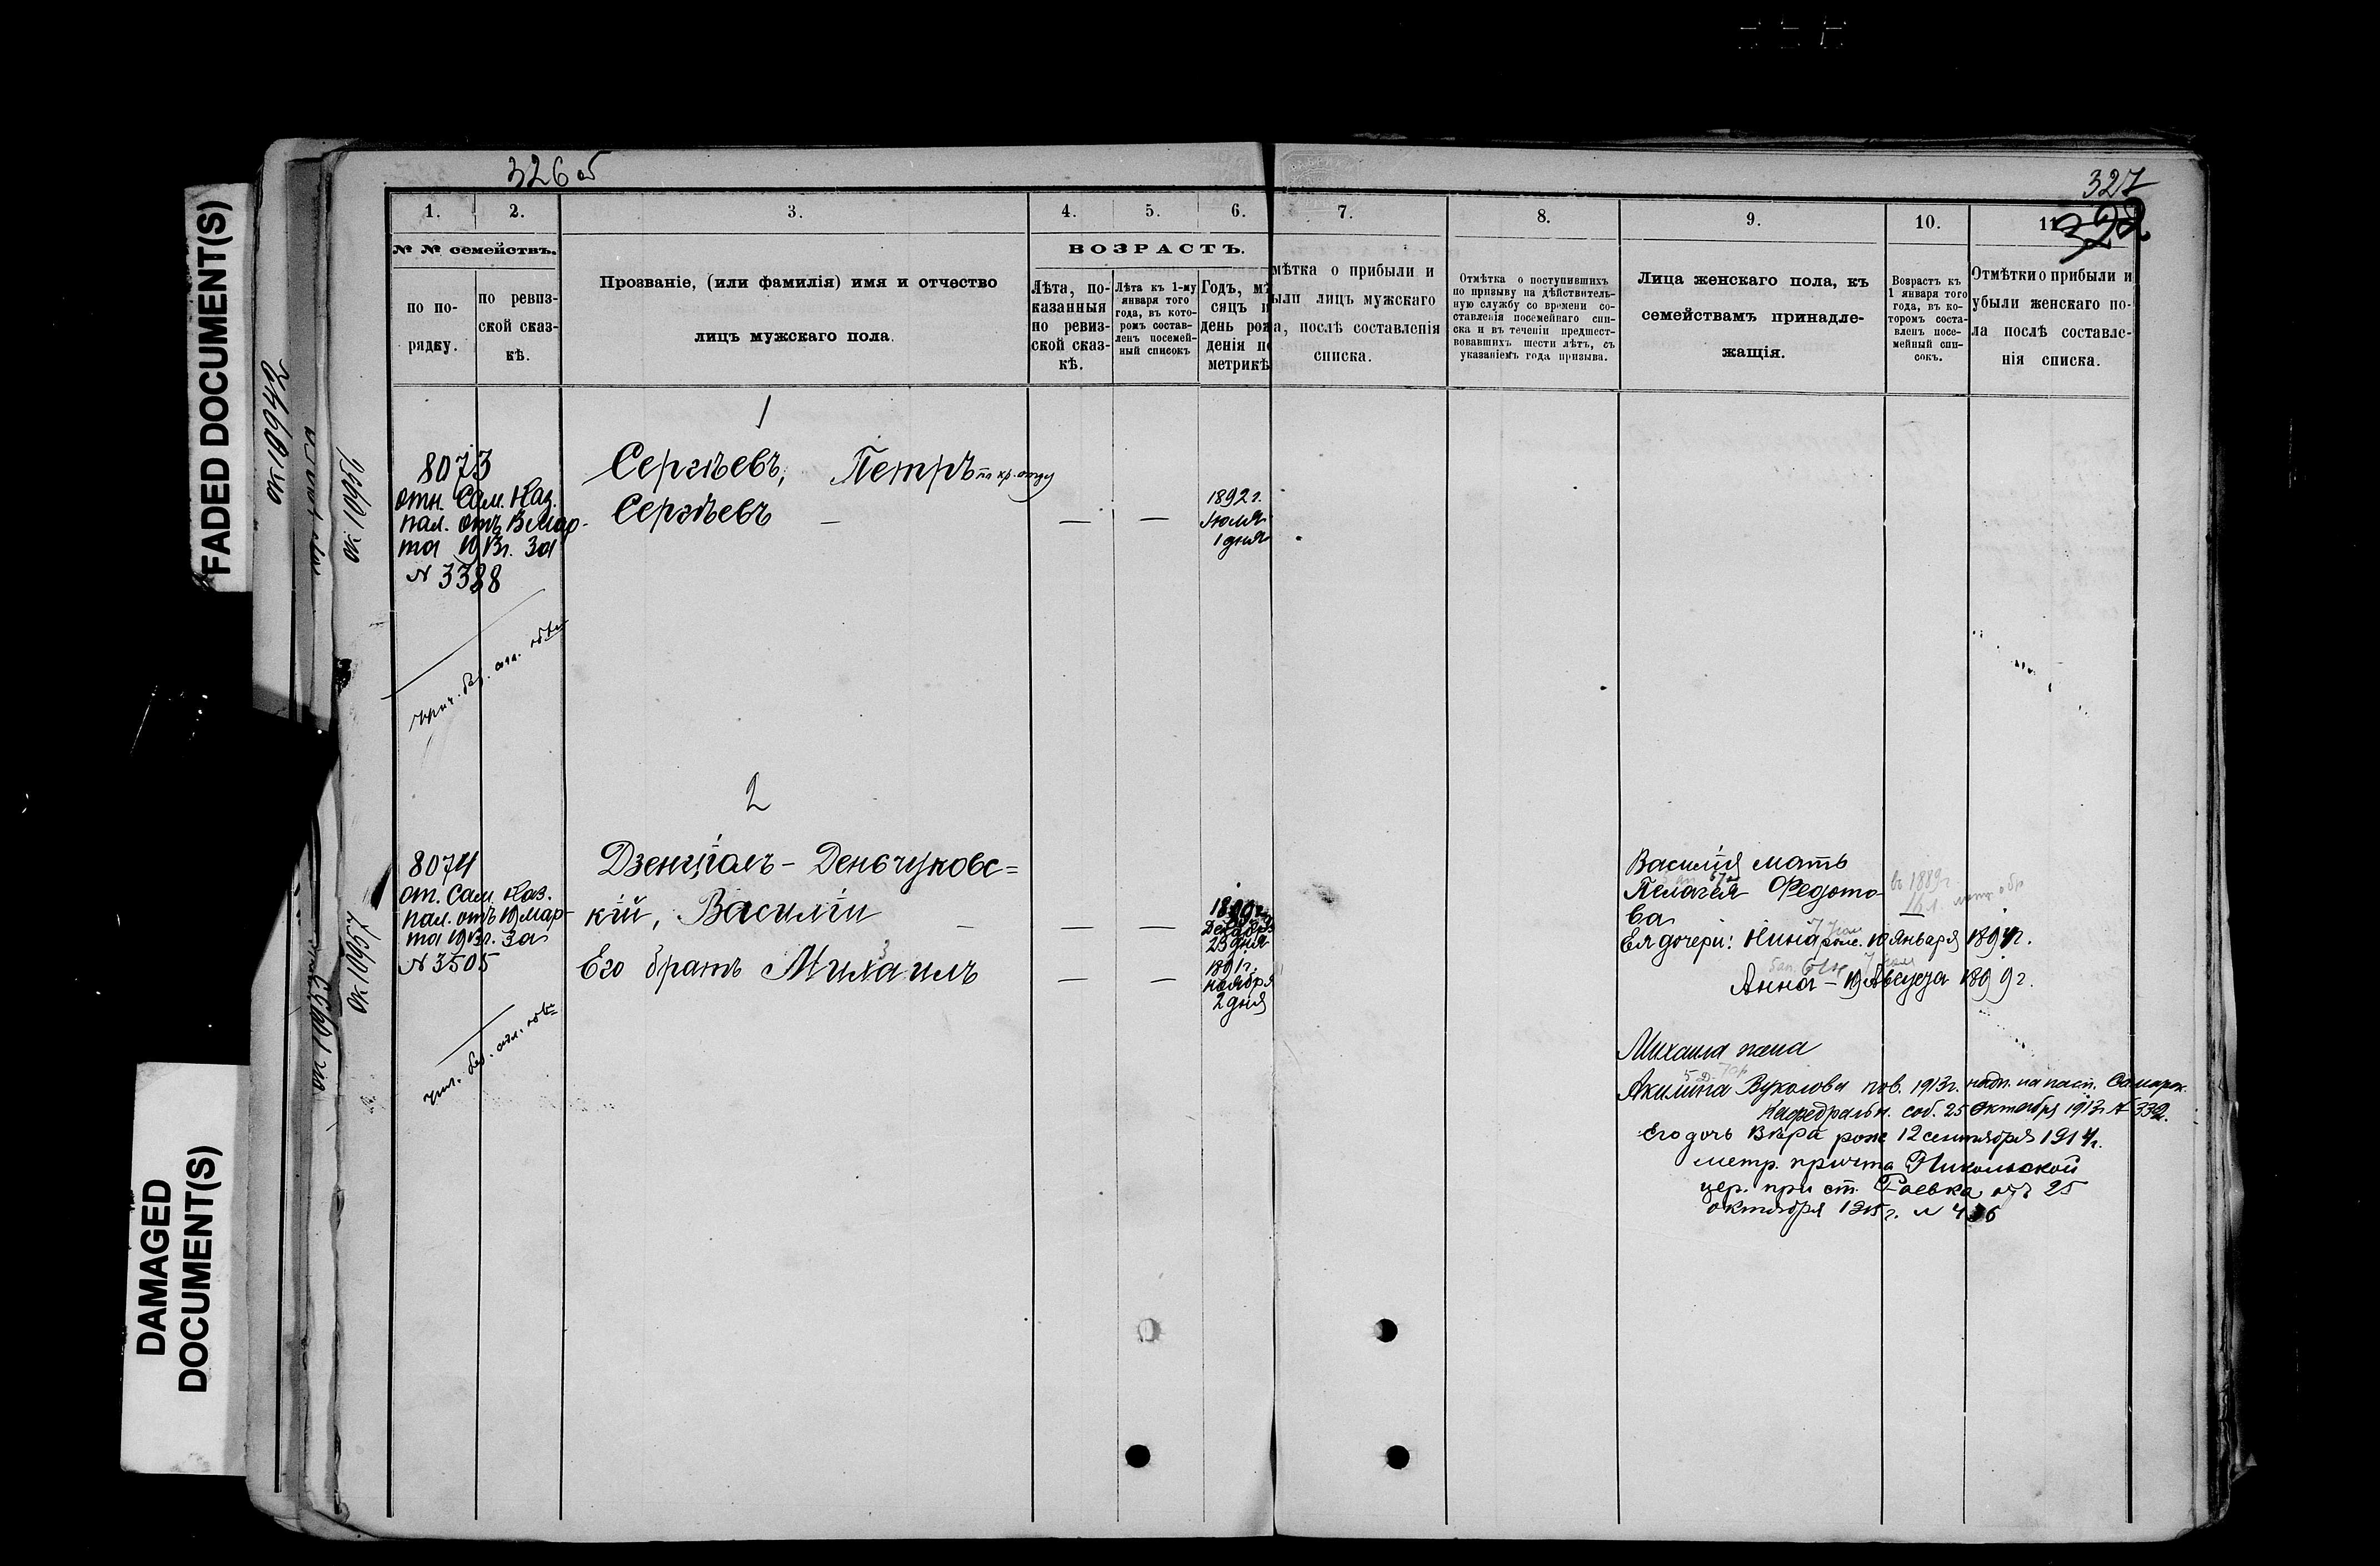 326 об
327
328
FADED DOCUMENT(S)
DAMAGED
DOCUMENT(S)
1.
2.
3.
4.
5.
6.
7.
8.
9.
10.
11
№ № семействъ.
по по-
рядку.
по ревиз-
ской сказ-
кѣ.
Прозваніе, (или фамилія) имя и отчество
лицъ мужскаго пола.
ВОЗРАСТЪ.
Лѣта, по-
казанныя
по ревиз-
ской сказ-
кѣ.
Лѣта къ 1-му
января того
года, въ кото-
ромъ состав-
ленъ посемей-
ный списокъ
Годъ, мѣ
сяцъ и
день рож
денія по
метрикѣ
мѣтка о прибыли и
ыли лицъ мужскаго
а, послѣ составленія
списка.
Отмѣтка о поступившихъ
по призыву на дѣйствитель-
ную службу со времени со-
ставленія посемейнаго спи-
ска и въ теченіи предшест-
вовавшихъ шести лѣтъ, съ
указаніемъ года призыва.
Лица женскаго пола, къ
семействамъ принадле-
жащія.
Возрастъ къ
1 января того
года, въ ко-
торомъ соста-
вленъ посе-
мейный спи-
сокъ.
Отмѣтки о прибыли и
убыли женскаго по-
ла послѣ составле-
нія списка.
1
8073
отн. Сам. Каз.
пал. отъ 13 мар-
та 1913г. за
№ 3388
Сергѣевъ, Петръ по кр. отцу
Сергѣевъ —
1892 г.
Іюля
1 дня
2
8074
от. Сам. Каз.
пал. отъ 19 мар-
та 1913г. за
№ 3505
Дзенціалъ-Денчуковс=
кій, Василій —
Декабря
23 дня
Его братъ Михаилъ
1891 г.
ноября
2 дня
Василія мать
Пелагея Федото-
ва
въ 1889г
Ея дочери: Нина рож. 10 Января 1894г.
Анна — 19 Августа 1899 г.
Михаила жена
Акилина Вуколова пов. 1913г. надп. на пасп. Самарск.
Кафедральн. соб. 25 октября 1913г № 332.
Его дочь Вѣра рож 12 сентября 1914г.
метр. причта Никольской
цер. при ст. Раевка отъ 25
октября 1915 г. №
ок 10942
ок 10951
ок 10957
ок 10953